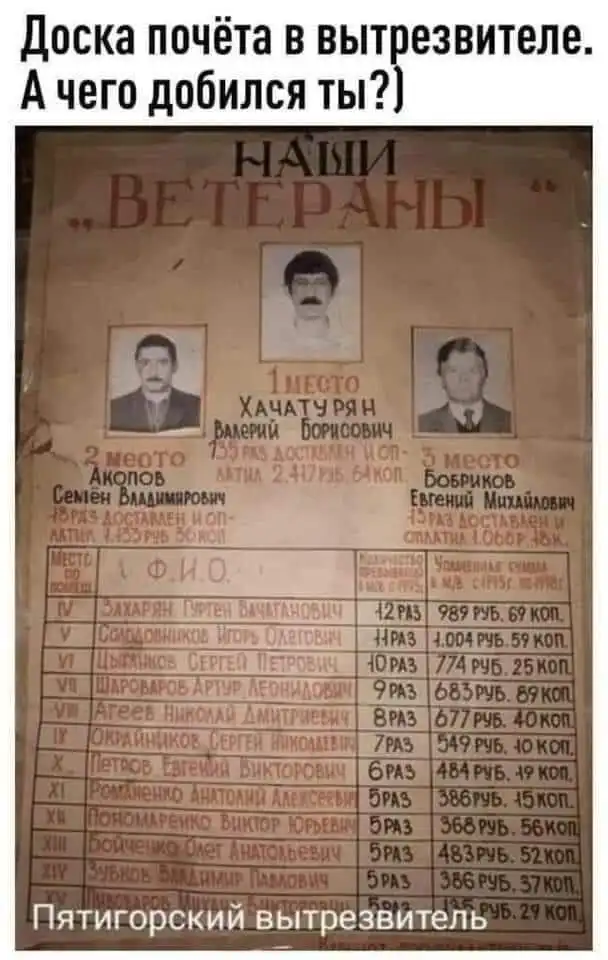 Доска почёта в вытрезвителе.
А чего добился ты?)
НАШИ
„ВЕТЕРАНЫ"
1 место
ХАЧАТУРЯН
Валерий Борисович
раз доставлен и оп-
латил 2.417 руб. 64 коп.
2 место
Акопов
Семён Владимирович
раз доставлен и оп-
латил 1.133 руб 50 коп
3 место
Бобриков
Евгений Михайлович
раз доставлен и
оплатил 1.066 р. к.
Место по Ф.И.О. Количество
IV Захарян Гурген Вачаганович 12 раз 989 руб. 69 коп.
V Солодовников Игорь Олегович 11 раз 1.004 руб. 59 коп.
VI Цыганков Сергей Петрович 10 раз 774 руб. 25 коп
VII Шароваров Артур Леонидович 9 раз 683 руб. 89 коп.
VIII Агеев Николай Дмитриевич 8 раз 677 руб. 40 коп
IX Окрайников Сергей Николаевич 7 раз 549 руб. 10 коп.
X Петров Евгений Викторович 6 раз 484 руб. 19 коп.
XI Романенко Анатолий Алексеевич 5 раз 386 руб. 15 коп.
XII Пономаренко Виктор Юрьевич 5 раз 368 руб. 56 коп
XIII Бойченко Олег Анатольевич 5 раз 483 руб. 52 коп.
XIV Зубков Владимир Павлович 5 раз 386 руб. 37 коп.
XV Пивоваров Михаил Викторович руб. 29 коп
Пятигорский вытрезвитель